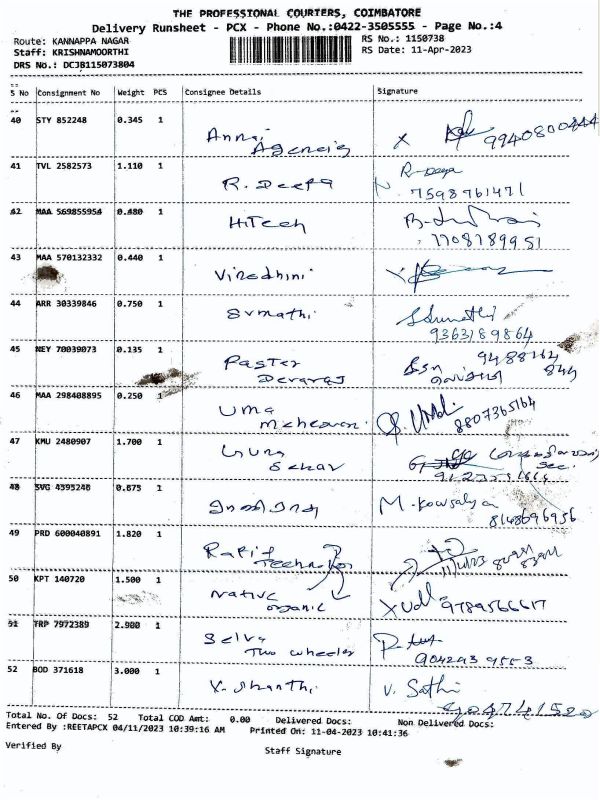 THE PROFESSIONAL COURIERS, COIMBATORE
Delivery Runsheet - PCX - Phone No.:0422-3505555 - Page No.:4
Route: KANNAPPA NAGAR RS No.: 1150738
Staff: KRISHNAMOORTHI RS Date: 11-Apr-2023
DRS No.: DCJB115073804
S No Consignment No Weight PCS Consignee Details Signature
40 STY 852248 0.345 1
Annai Agencies X 9940800444
41 TVL 2582573 1.110 1
R. Deepa 7598761471
42 MAA 569855954 0.480 1
HiTech 7708789951
43 MAA 570132332 0.440 1
Viredhini
44 ARR 30339846 0.750 1
Sumathi
9363189864
45 NEY 70039073 0.135 1
Paster Devaraj 9488164 844
46 MAA 298408895 0.250 1
Uma 8807365164
47 KMU 2480907 1.700 1
Guna Sekar
48 SVG 4395248 0.875 1
M. Kowsalya
8148696956
49 PRD 600040891 1.820 1
50 KPT 140720 1.500 1
Native organic 9789566617
51 TRP 7972389 2.900 1
Selva Two wheeler
9042939553
52 BOD 371618 3.000 1
V. Shanthi V. Sathi
Total No. Of Docs: 52 Total COD Amt: 0.00 Delivered Docs: Non Delivered Docs:
Entered By :REETAPCX 04/11/2023 10:39:16 AM Printed On: 11-04-2023 10:41:36
Verified By Staff Signature